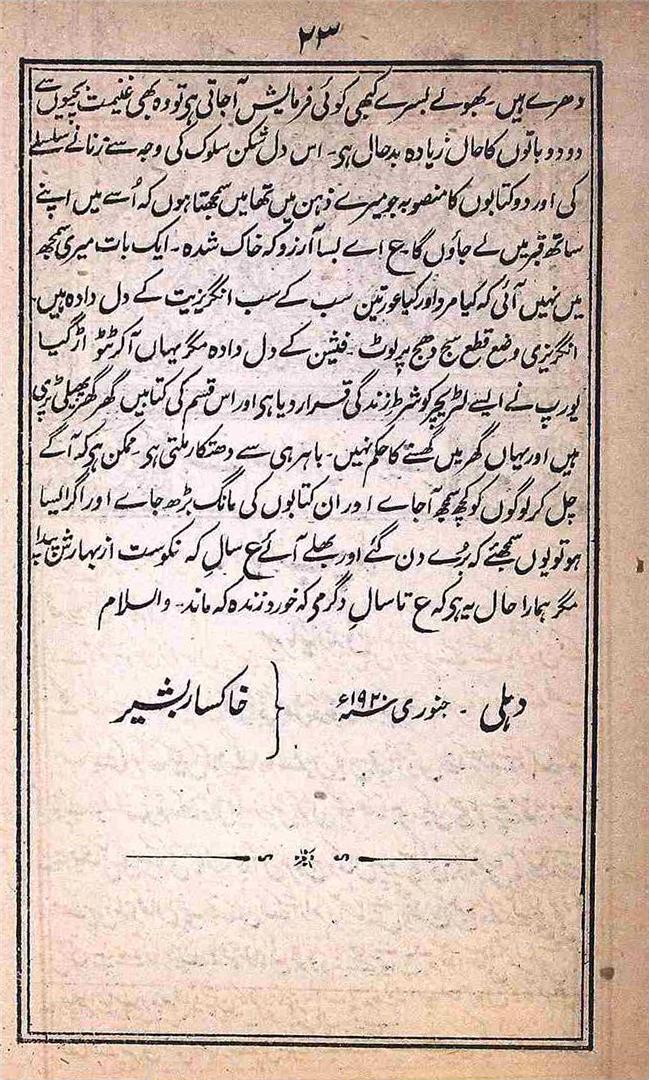 ۲۳
دھرے ہیں۔ بھولے بسرے کبھی کوئی فرمایش آجاتی ہی تو وہ بھی غنیمت بچیوں سے
دو دو باتوں کا حال زیادہ بدحال ہی۔ اس دل شکن سلوک کی وجہ سے زنانے سلسلے
کی اور دو کتابوں کا منصوبہ جو میرے ذہن میں تھا میں سمجھتا ہوں کہ اُسے میں اپنے
ساتھ قبر میں لے جاؤں گا ع اے بسا آرزو کہ خاک شدہ۔ ایک بات میری سمجھ
میں نہیں آئی کہ کیا مرد اور کیا عورتین سب کے سب انگریزیت کے دل دادہ ہیں۔
انگریزی وضع قطع سج دھج پر لوٹ۔ فیشن کے دل دادہ مگر یہاں آکر ٹٹو اڑ گیا
یورپ نے ایسے لٹریچر کو شرط زندگی قرار دیا ہی اور اس قسم کی کتابیں گھر گھر پھیلی پڑی
ہیں اور یہاں گھر میں گھسنے کا حکم نہیں۔ باہر ہی سے دھتکار ملتی ہی۔ ممکن ہی کہ آگے
چل کر لوگوں کو کچھ سمجھ آجاے اور ان کتابوں کی مانگ بڑھ جاے اور اگر ایسا
ہو تو یوں سمجھئے کہ بُرے دن گئے اور بھلے آئے ع سالِ کہ نکوست از بہارش پیدا
مگر ہمارا حال یہ ہی کہ ع تا سالِ دگر می کہ خورد زندہ کہ ماند۔ والسلام
دہلی۔ جنوری سنہ ۱۹۲۰ء } خاکسار بشیر